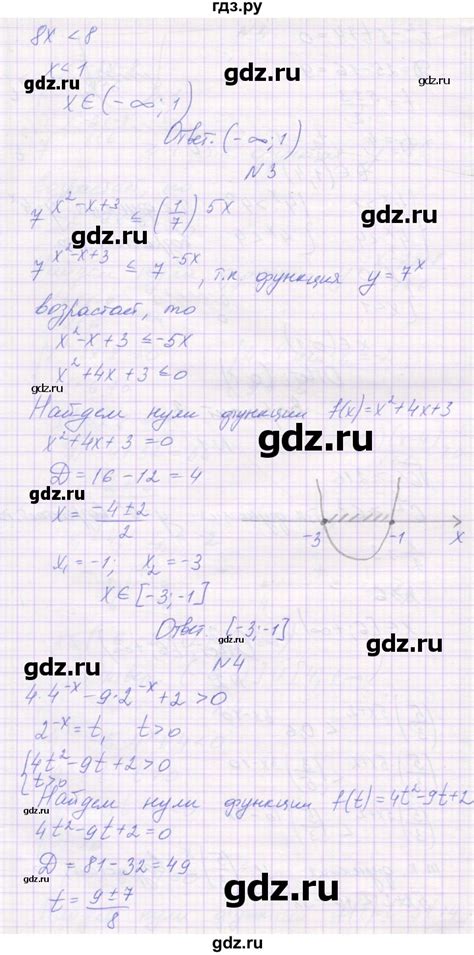 гдз.ру
8x < 8
x < 1
x ∈ (-∞; 1)
Ответ: (-∞; 1)
N3
7^(x²-x+3) ≤ (1/7)^(5x)
gdz.ru
7^(x²-x+3) ≤ 7^(-5x), т.к. функция y = 7^x
gdz.ru
возрастает, то
x² - x + 3 ≤ -5x
gdz.ru
x² + 4x + 3 ≤ 0
gdz.ru
Найдем нули функции f(x) = x² + 4x + 3
x² + 4x + 3 = 0
gdz.ru
D = 16 - 12 = 4
gdz.ru
x = (-4 ± 2)/2
-3 -1 x
x₁ = -1; x₂ = -3
gdz.ru
x ∈ [-3; -1]
Ответ: [-3; -1]
gdz.ru
gdz.ru
N4
4·4^(-x) - 9·2^(-x) + 2 > 0
2^(-x) = t, t > 0
gdz.ru
{4t² - 9t + 2 > 0
{t > 0
Найдем нули функции f(t) = 4t² - 9t + 2
4t² - 9t + 2 = 0
D = 81 - 32 = 49
gdz.ru
t = (9 ± 7)/8
gdz.ru
gdz.ru